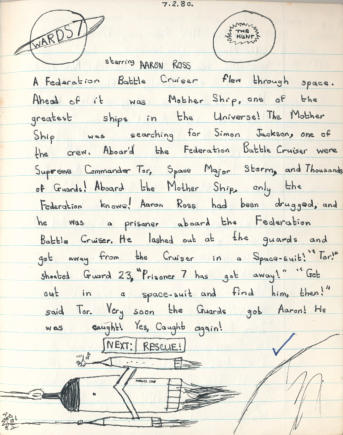 7.2.80.
WARDS 7
THE HUNT
starring AARON ROSS
A Federation Battle Cruiser flew through space.
Ahead of it was Mother Ship, one of the
greatest ships in the Universe! The Mother
Ship was searching for Simon Jackson, one of
the crew. Aboard the Federation Battle Cruiser were
Supreme Commander Tor, Space Major Storm, and Thousands
of Guards! Aboard the Mother Ship, only the
Federation knows! Aaron Ross had been drugged, and
he was a prisoner aboard the Federation
Battle Cruiser. He lashed out at the guards and
got away from the Cruiser in a Space-suit! "Tor!"
shouted Guard 23, "Prisoner 7 has got away!" "Get
out in a space-suit and find him, then!"
said Tor. Very soon the Guards gob Aaron! He
was caught! Yes, Caught again!
NEXT: RESCUE!